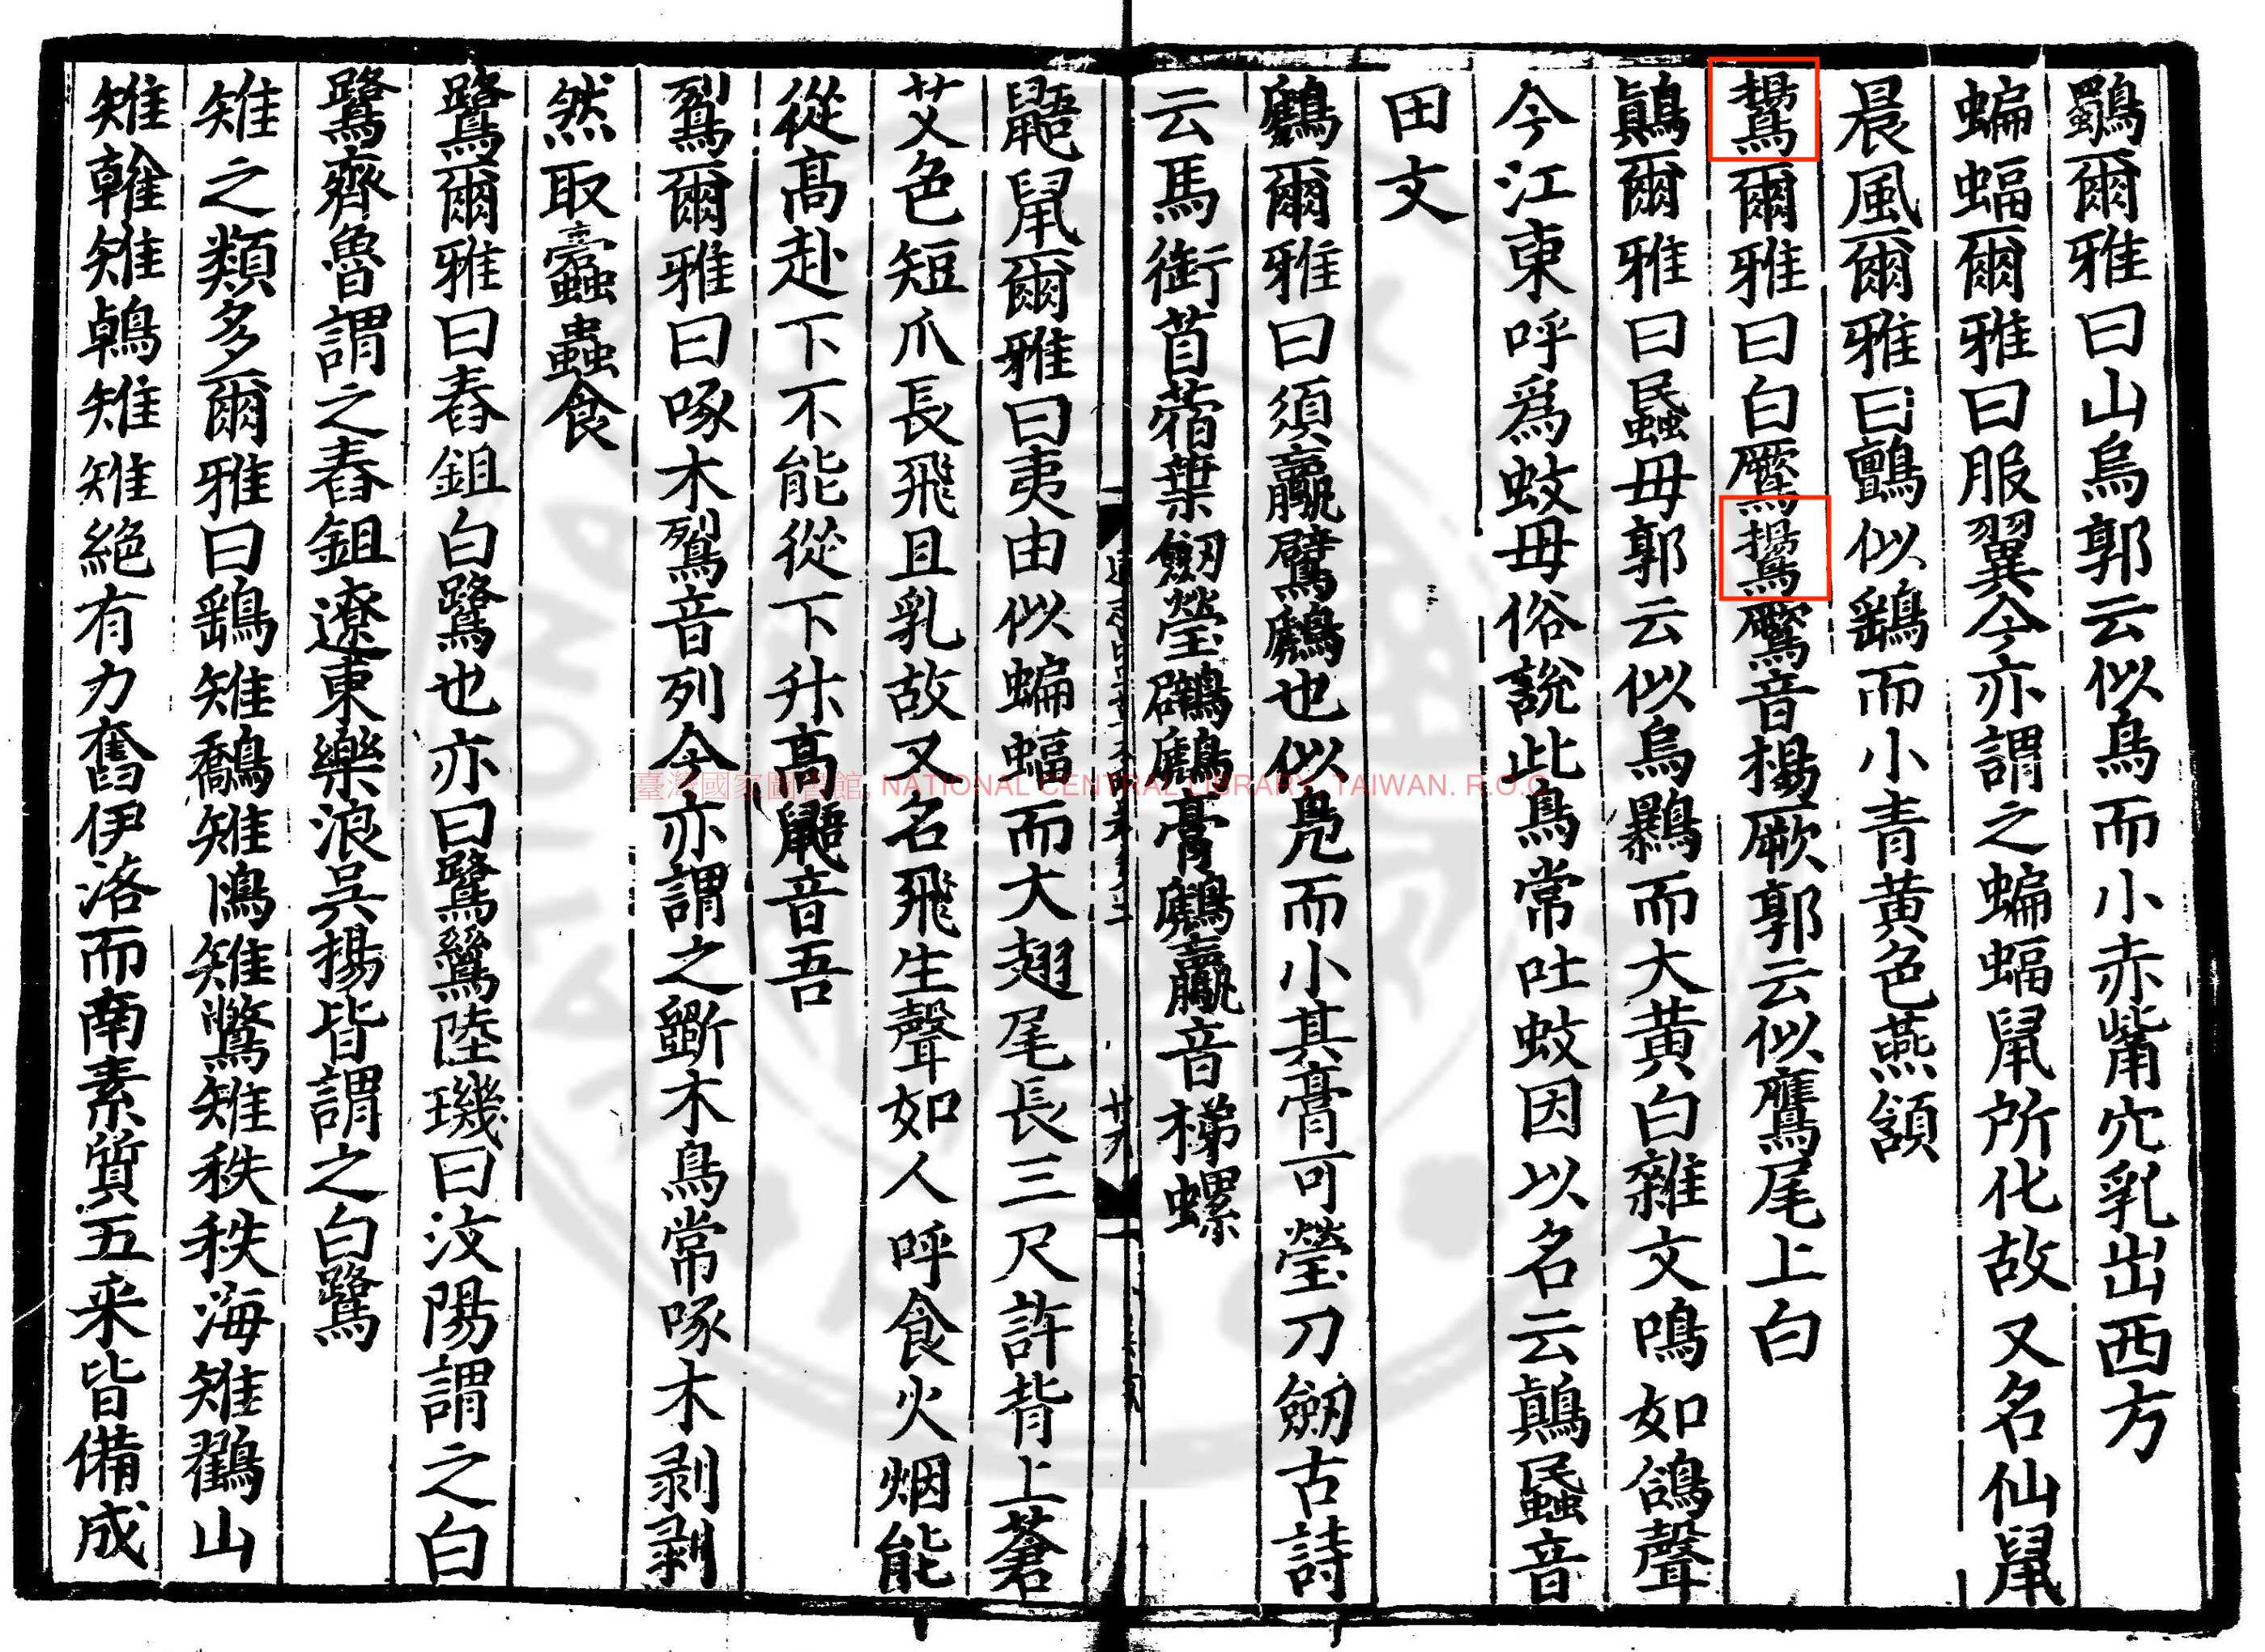 鸀爾雅曰山烏郭云似烏而小赤觜穴乳岀西方
蝙蝠爾雅曰服翼今亦謂之蝙蝠鼠所化故又名仙鼠
晨風爾雅曰鸇似鷂而小青黃色燕頷
鸉爾雅曰白鷢鸉鷢音楊厥郭云似鷹尾上白
鷏爾雅曰蟁母郭云似烏鸔而大黃白雜文鳴如鴿聲
今江東呼爲蚊母俗說此鳥常吐蚊因以名云鷏蟁音
田文
鷉爾雅曰須鸁鷿鷉也似鳧而小其膏可瑩刀劒古詩
云馬銜苜蓿葉劒瑩鸊鷉膏鷉鸁音梯螺
廿九
鼯鼠爾雅曰夷由似蝙蝠而大翅尾長三尺許背上蒼
艾色短爪長飛且乳故又名飛生聲如人呼食火烟能
從髙赴下不能從下升髙鼯音吾
鴷爾雅曰啄木鴷音列今亦謂之斲木鳥常啄木剥剥
然取蠹蟲食
鷺爾雅曰舂鉏白鷺也亦曰鷺鷥陸璣曰汶陽謂之白
鷺齊魯謂之舂鉏遼東樂浪吳揚皆謂之白鷺
雉之類多爾雅曰鷂雉鷮雉鳪雉鷩雉秩秩海雉鸐山
雉雗雉鵫雉雉絕有力奮伊洛而南素質五采皆備成
臺灣國家圖書館, NATIONAL CENTRAL LIBRARY, TAIWAN. R.O.C